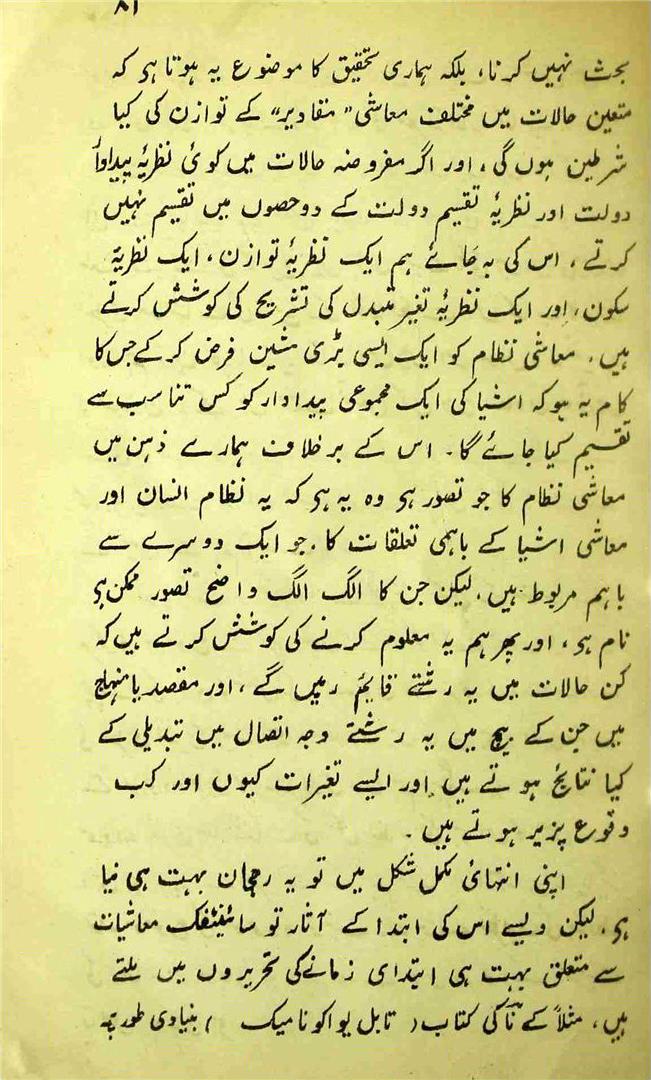 ۸۱
بحث نہیں کرنا، بلکہ ہماری تحقیق کا موضوع یہ ہوتا ہی کہ
متعین حالات میں مختلف معاشی "مقادیر" کے توازن کی کیا
شرطیں ہوں گی، اور اگر مفروضہ حالات میں کوئی نظریۂ پیداوار
دولت اور نظریۂ تقسیم دولت کے دو حصوں میں تقسیم نہیں
کرتے، اس کی بہ جائے ہم ایک نظریۂ توازن، ایک نظریۂ
سکون، اور ایک نظریۂ تغیر متبدل کی تشریح کی کوشش کرتے
ہیں۔ معاشی نظام کو ایک ایسی بڑی مشین فرض کر کے جس کا
کام یہ ہو کہ اشیا کی ایک مجموعی پیداوار کو کس تناسب سے
تقسیم کیا جائے گا۔ اس کے برخلاف ہمارے ذہن میں
معاشی نظام کا جو تصور ہی وہ یہ ہی کہ یہ نظام انسان اور
معاشی اشیا کے باہمی تعلقات کا، جو ایک دوسرے سے
باہم مربوط ہیں، لیکن جن کا الگ الگ واضح تصور ممکن ہی
نام ہی، اور پھر ہم یہ معلوم کرنے کی کوشش کرتے ہیں کہ
کن حالات میں یہ رشتے قایم رہیں گے، اور مقصد یا منہاج
میں جن کے بیچ میں یہ رشتے وجہ اتصال ہیں تبدیلی کے
کیا نتایج ہوتے ہیں اور ایسے تغیرات کیوں اور کب
وقوع پزیر ہوتے ہیں۔
اپنی انتہائی مکمل شکل میں تو یہ رجحان بہت ہی نیا
ہی، لیکن ویسے اس کی ابتدا کے آثار تو سائنٹفک معاشیات
سے متعلق بہت ہی ابتدای زمانے کی تحریروں میں ملتے
ہیں، مثلاً کے نا کی کتاب (تابل یو اکونامیک) بنیادی طور پہ